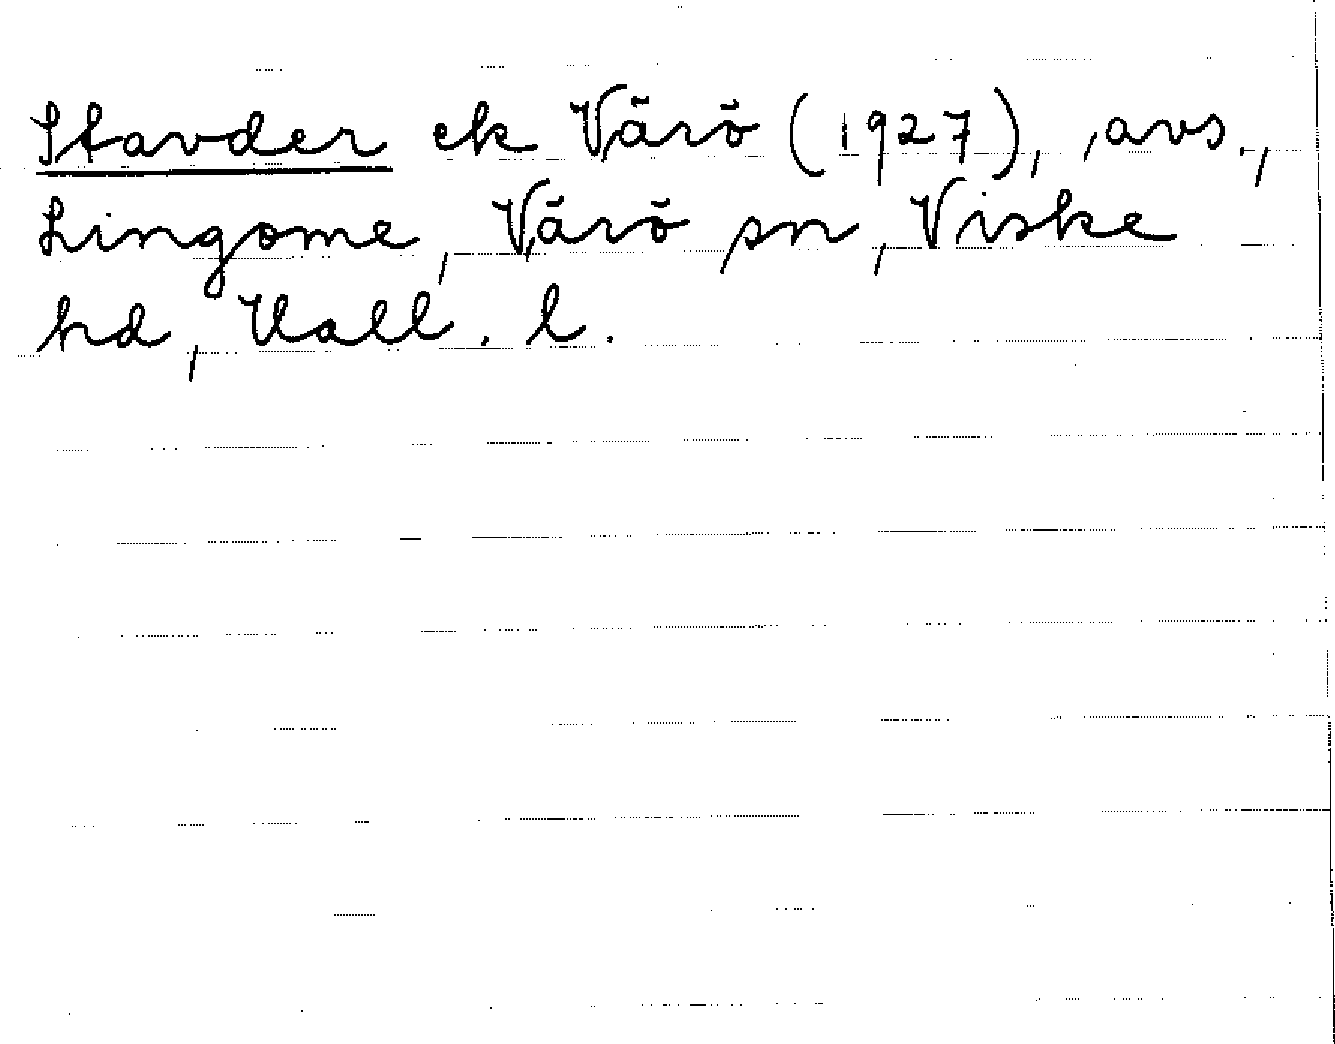 Stavder ek Värö (1927), ,avs.,
Lingome, Värö sn, Viske
hd, Hall. l.